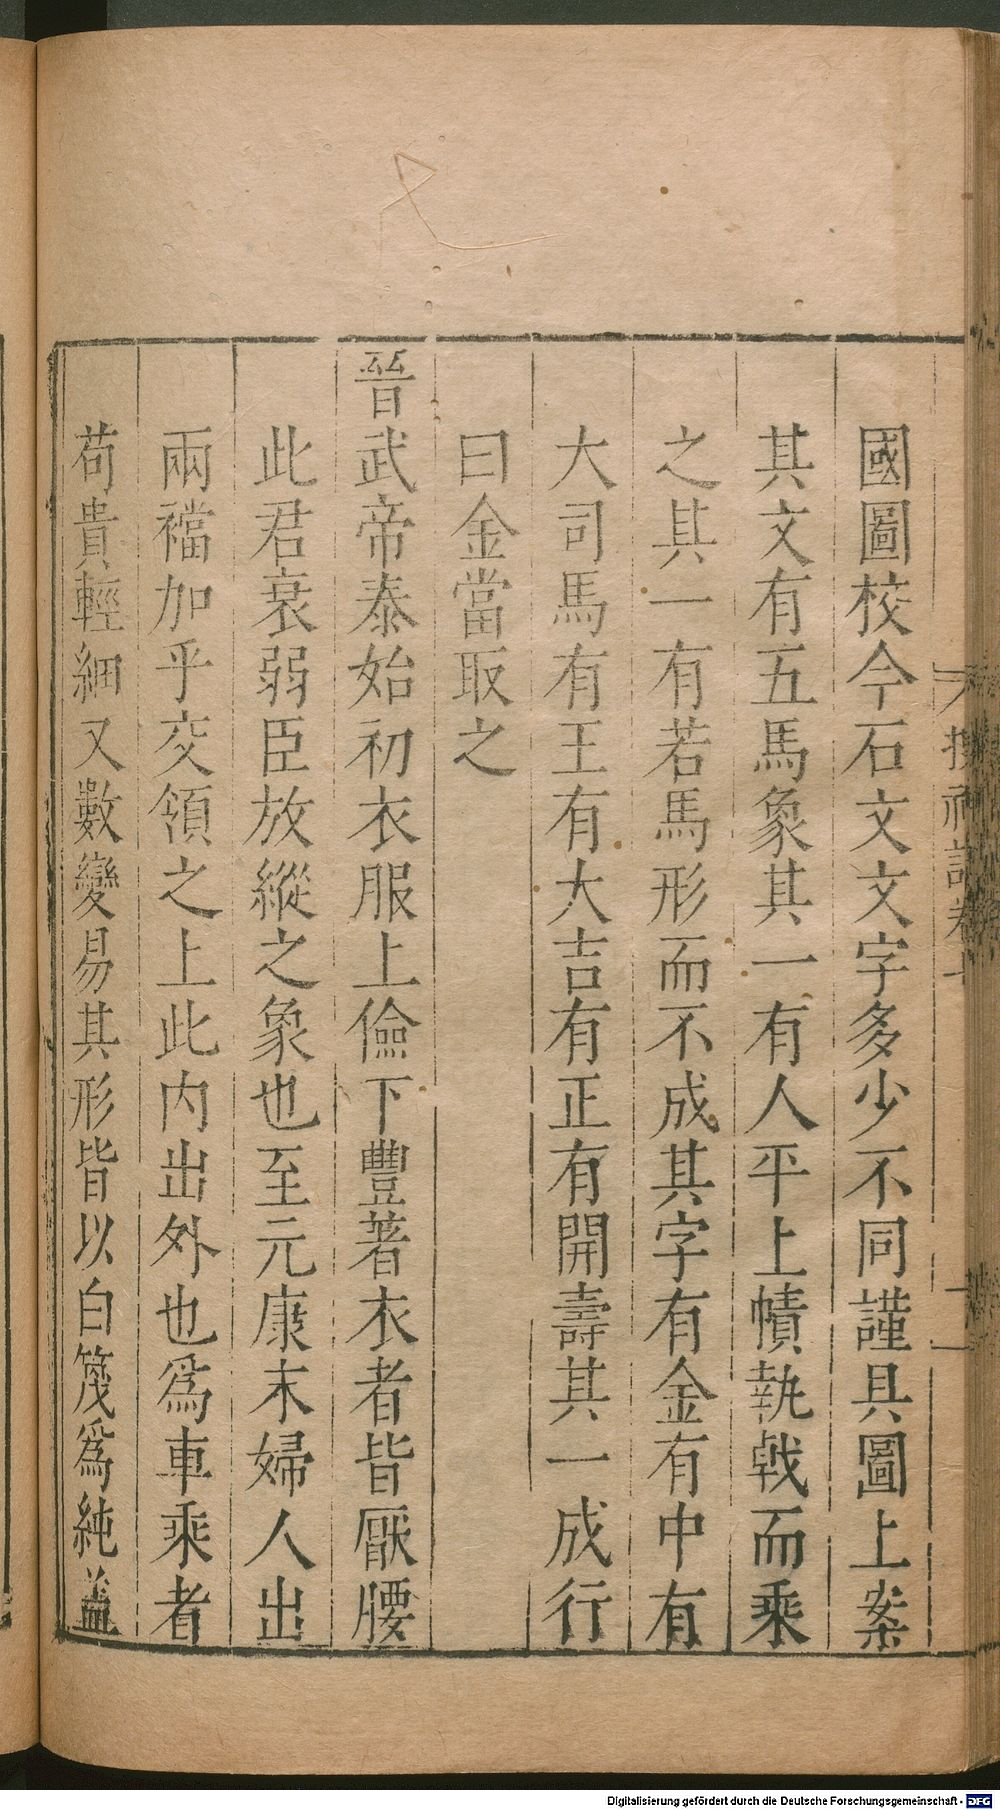 國圖校今石文文字多少不同謹具圖上案
其文有五馬象其一有人平上幘執戟而乘
之其一有若馬形而不成其字有金有中有
大司馬有王有大吉有正有開壽其一成行
曰金當取之
晉武帝泰始初衣服上儉下豐著衣者皆厭腰
此君衰弱臣放縱之象也至元康末婦人出
兩襠加乎交領之上此内出外也爲車乘者
苟貴輕細又數變易其形皆以白篾爲純蓋
Digitalisierung gefördert durch die Deutsche Forschungsgemeinschaft - DFG